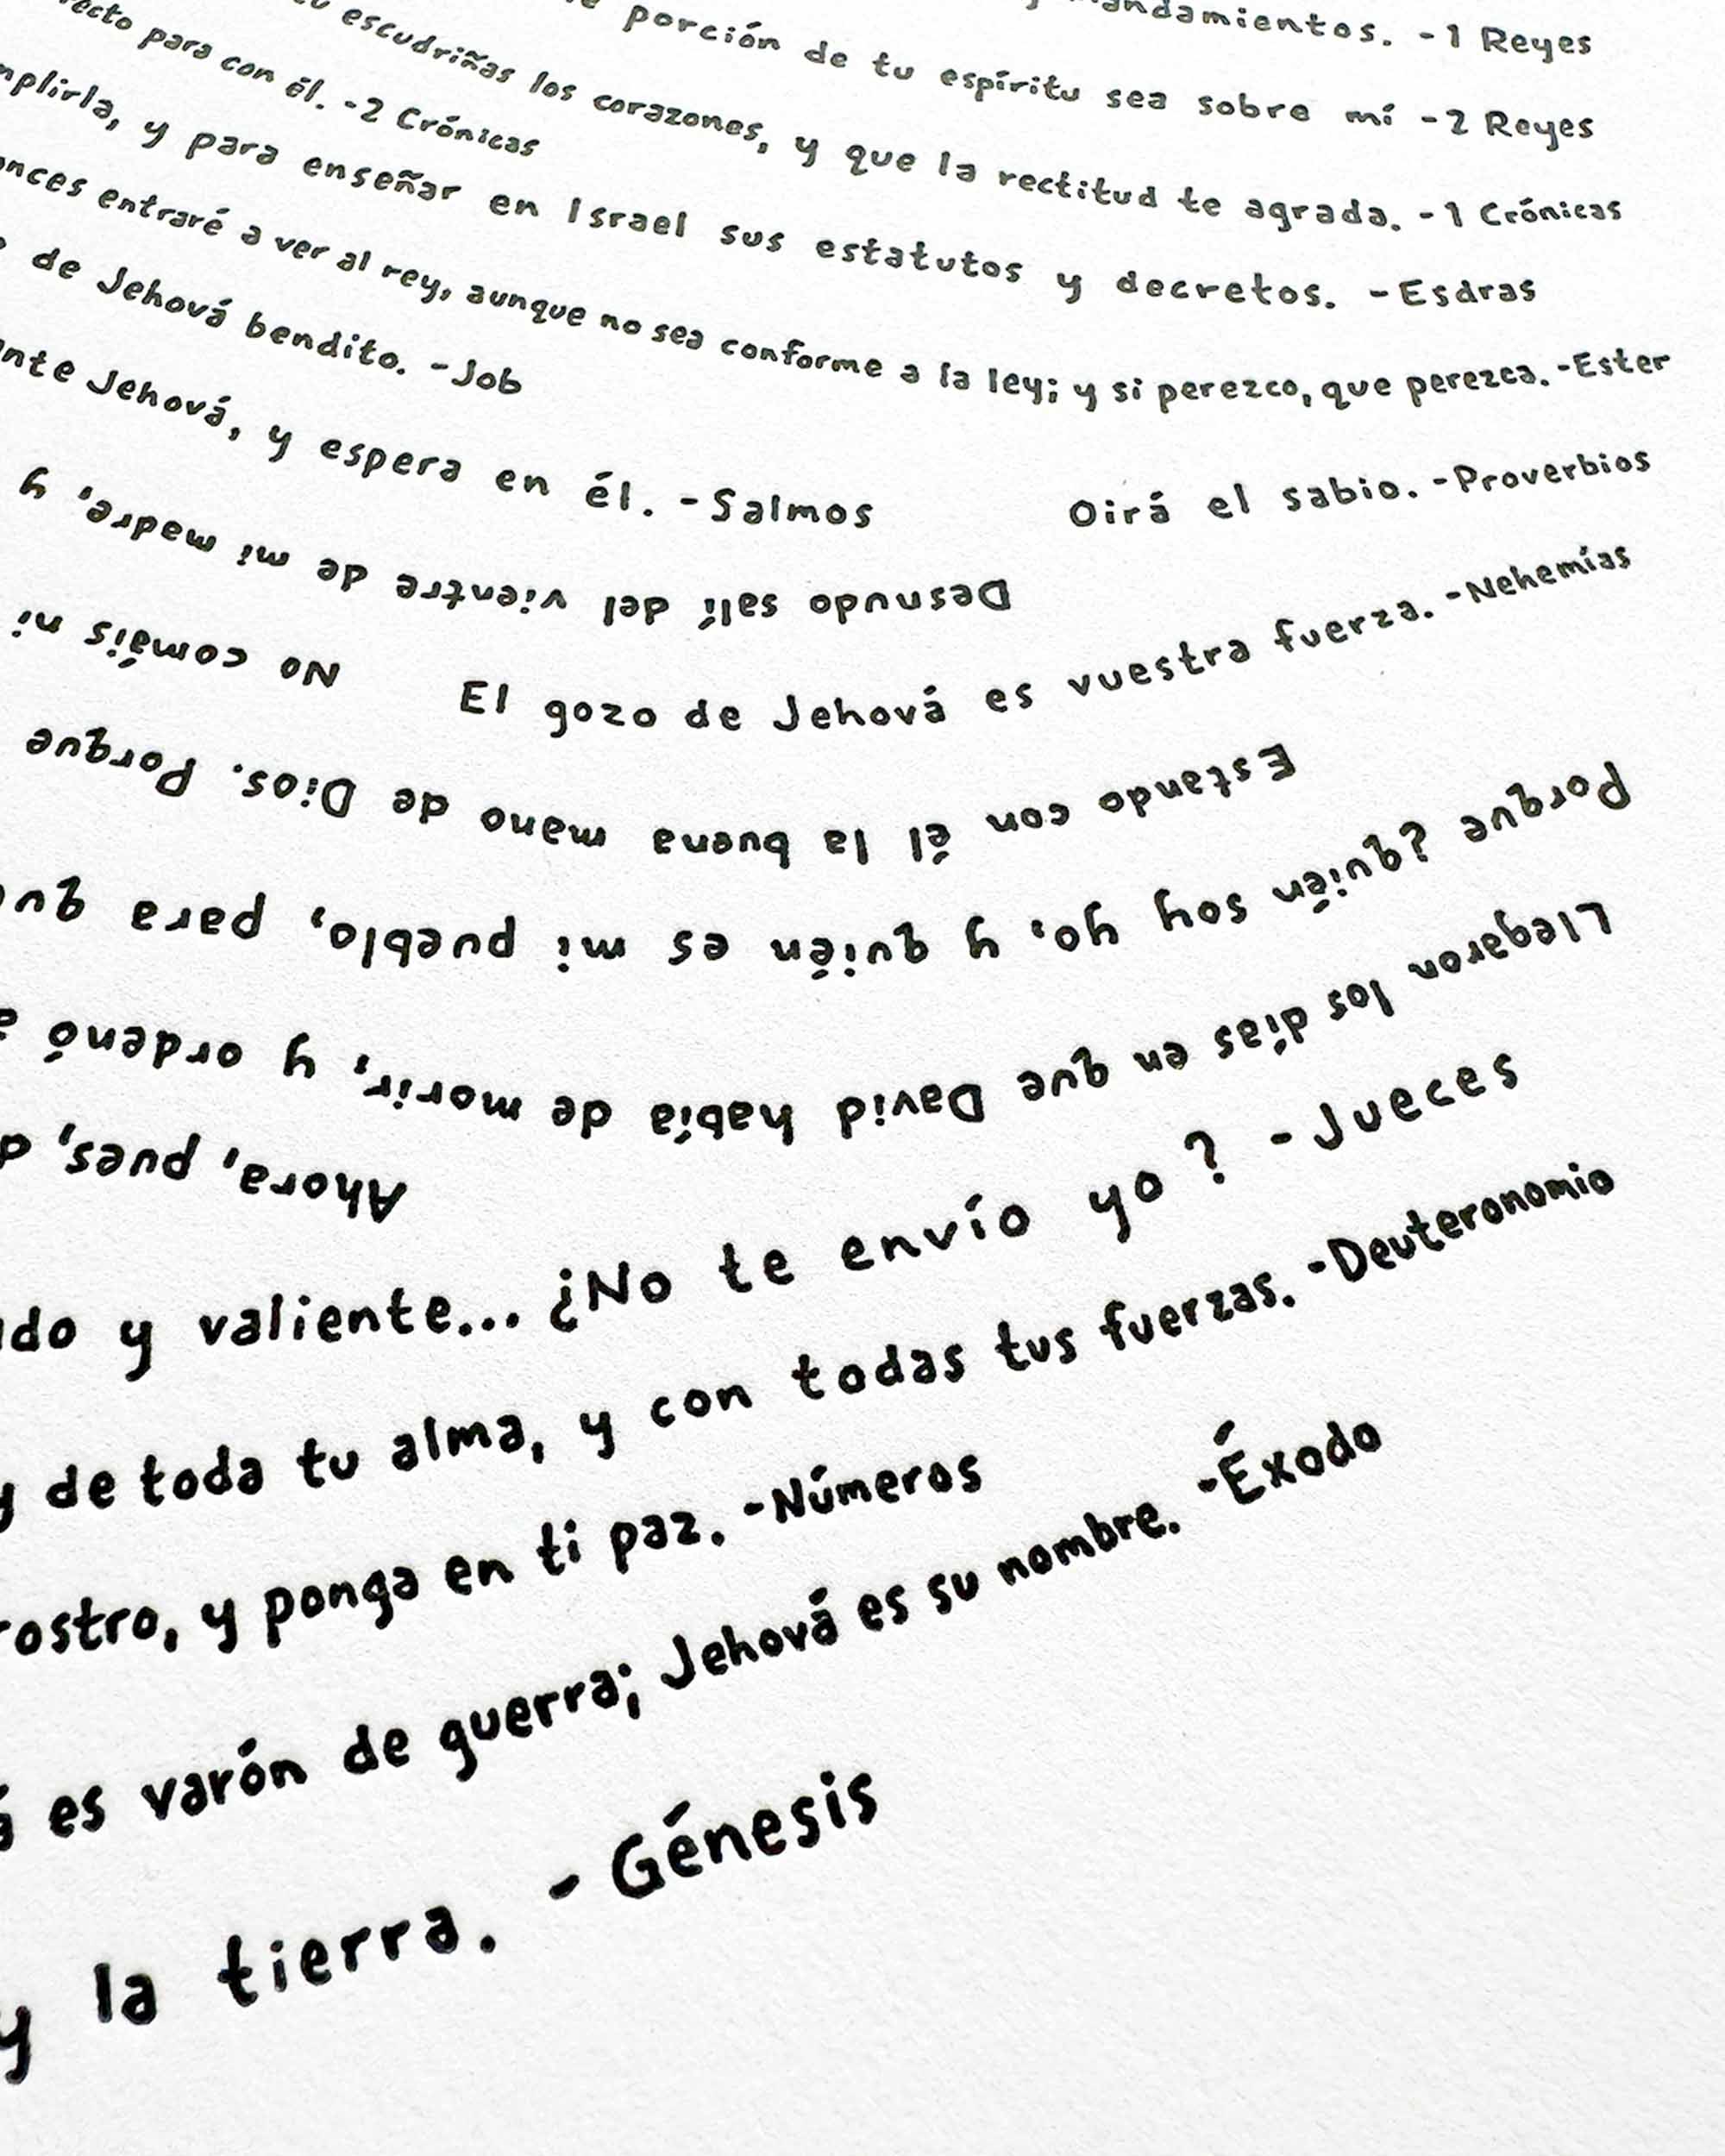 mandamientos. -1 Reyes
porción de tu espíritu sea sobre mí -2 Reyes
escudriñas los corazones, y que la rectitud te agrada. -1 Crónicas
para con él. -2 Crónicas
y para enseñar en Israel sus estatutos y decretos. -Esdras
entraré a ver al rey, aunque no sea conforme a la ley; y si perezco, que perezca. -Ester
de Jehová bendito. -Job
Jehová, y espera en él. -Salmos
Oirá el sabio. -Proverbios
Desnudo salí del vientre de mi madre, y
El gozo de Jehová es vuestra fuerza. -Nehemías
No comáis ni
Estando con él la buena mano de Dios. Porque
Porque ¿quién soy yo, y quién es mi pueblo, para que
Llegaron los días en que David había de morir, y ordenó a
Ahora, pues,
y valiente... ¿No te envío yo? -Jueces
y de toda tu alma, y con todas tus fuerzas. -Deuteronomio
rostro, y ponga en ti paz. -Números
es varón de guerra; Jehová es su nombre. -Éxodo
y la tierra. - Génesis